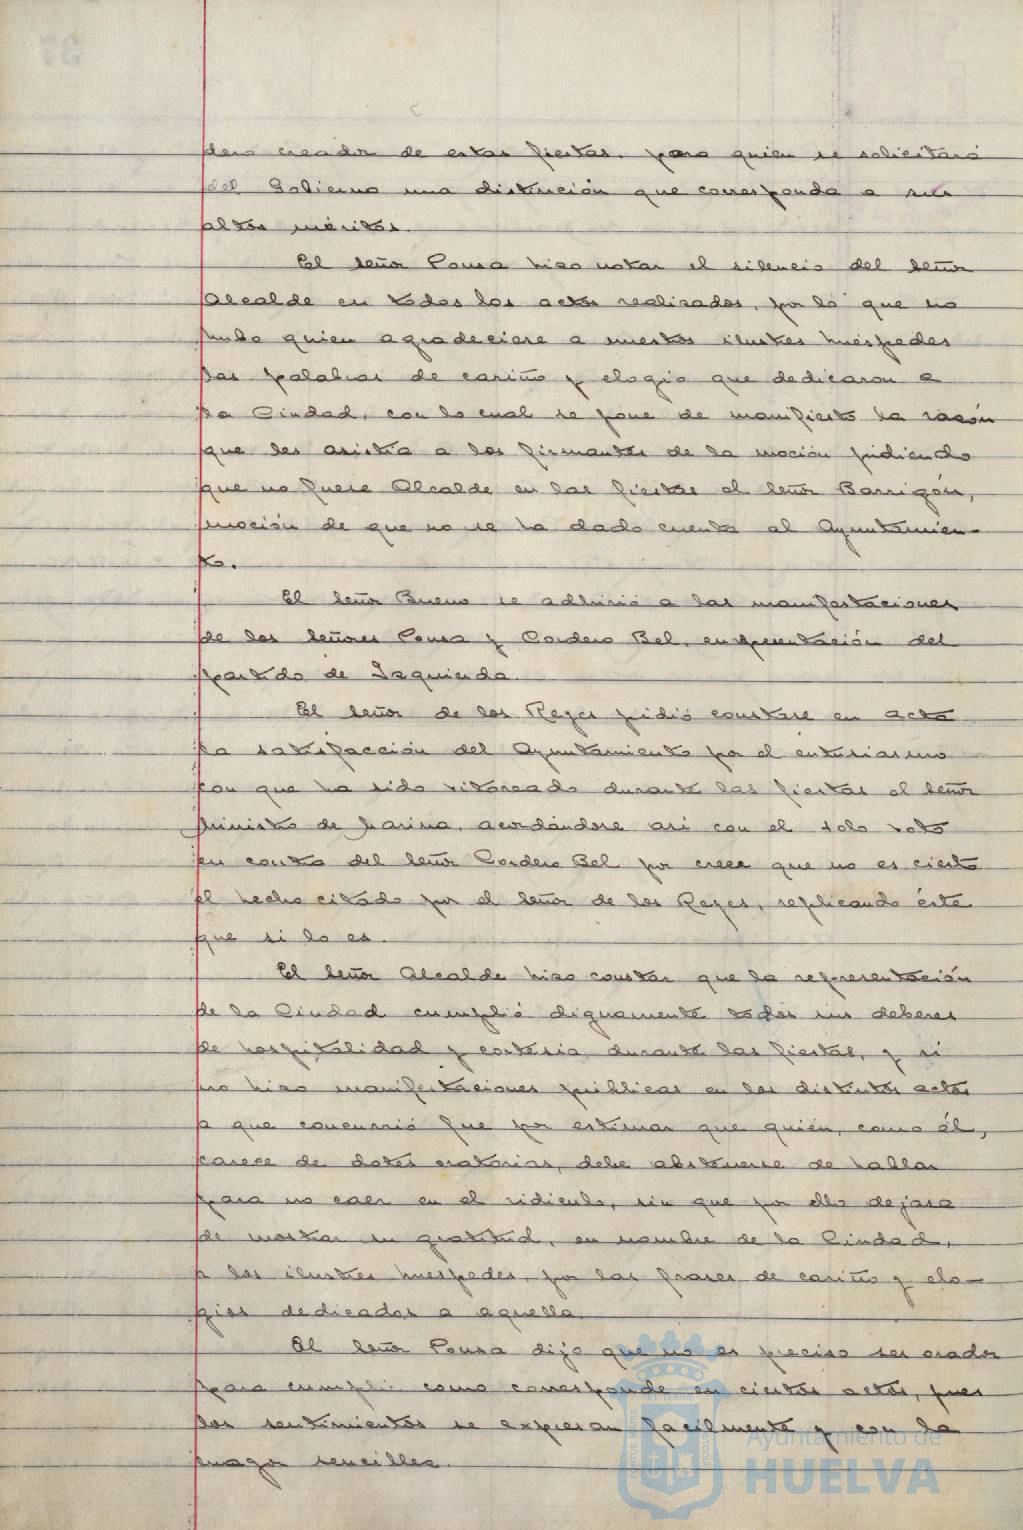 dero creador de estas fiestas, para quien se solicitará
del Gobierno una distinción que corresponda a sus
altos méritos.
El Señor Ponsa hizo notar el silencio del Señor
Alcalde en todos los actos realizados, por lo que no
hubo quien agradeciese a nuestros ilustres huéspedes
las palabras de cariño y elogio que dedicaron a
la Ciudad, con lo cual se pone de manifiesto la razón
que les asistía a los firmantes de la moción pidiendo
que no fuese Alcalde en las fiestas el Señor Barrigón,
moción de que no se ha dado cuenta al Ayuntamien-
to.
El Señor Bueno se adhirió a las manifestaciones
de los Señores Ponsa y Cordero Bel, en representación del
partido de Izquierda.
El Señor de los Reyes pidió constase en acta
la satisfacción del Ayuntamiento por el entusiasmo
con que ha sido vitoreado durante las fiestas el Señor
Ministro de Marina, acordándose así con el solo voto
en contra del Señor Cordero Bel por creer que no es cierto
el hecho citado por el Señor de los Reyes, replicando éste
que si lo es.
El Señor Alcalde hizo constar que la representación
de la Ciudad cumplió dignamente todos sus deberes
de hospitalidad y cortesia durante las fiestas, y si
no hizo manifestaciones públicas en los distintos actos
a que concurrió fue por estimar que quién, como él,
carece de dotes oratorias, debe abstenerse de hablar
para no caer en el ridiculo, sin que por ello dejara
de mostrar su gratitud, en nombre de la Ciudad,
a los ilustres huespedes, por las frases de cariño y elo-
gios dedicados a aquella.
El Señor Ponsa dijo que no es preciso ser orador
para cumplir como corresponde en ciertos actos, pues
los sentimientos se expresan facilmente y con la
mayor sencillez.
Ayuntamiento de
HUELVA